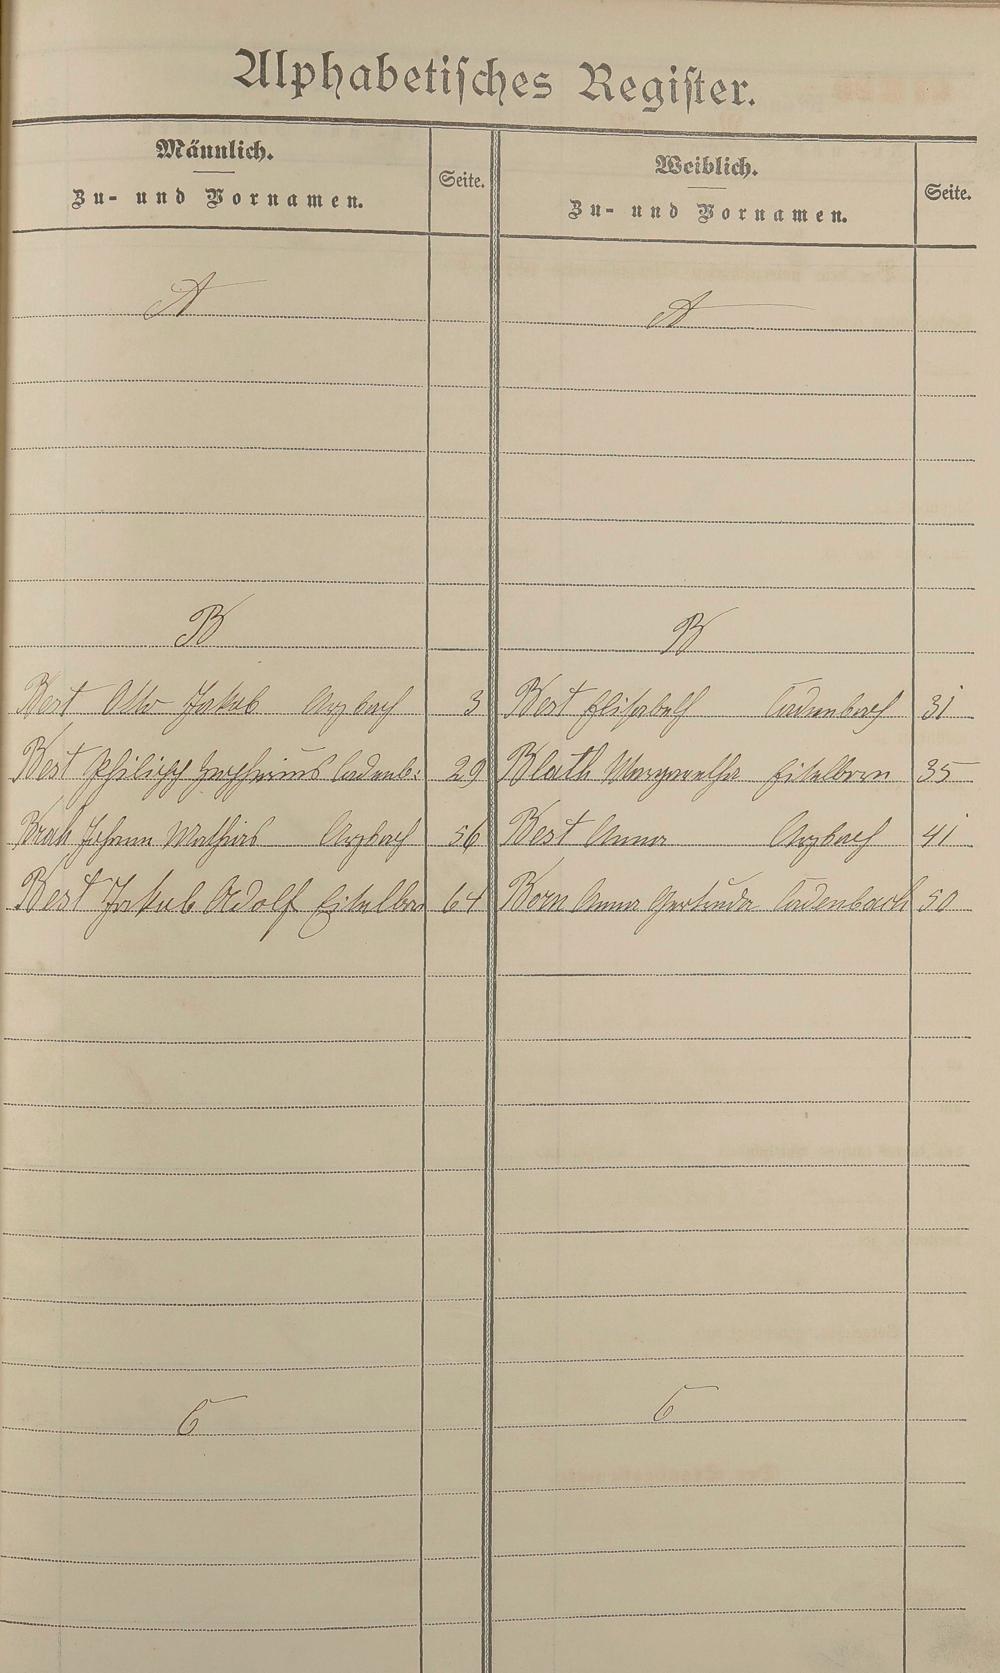 Alphabetisches Register.
Männlich.
Zu- und Vornamen.
Seite.
Weiblich.
Zu- und Vornamen.
Seite.
A
A
B
B
Best Otto Jakob Arzbach 3
Best Elisabeth Cadenbach 31
Best Philipp Cadenb. 29
Blath Margaretha Eitelborn 35
Brah Johann Mathias Arzbach 56
Best Anna Arzbach 41
Best Jakob Adolf Eitelborn 64
Born Anna Gertruda Cadenbach 50
C
C